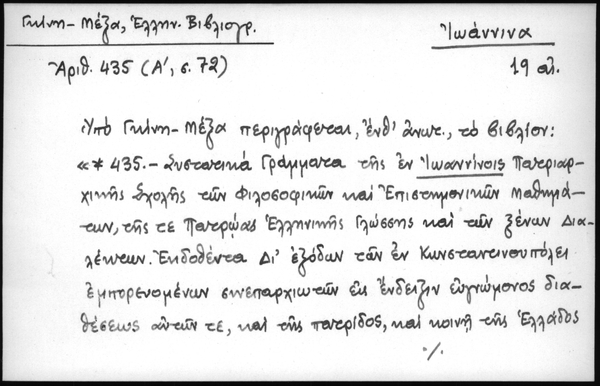 Γκίνη - Μέξα, Ἑλλην. Βιβλιογρ.
Ἰωάννινα
Ἀριθ. 435 (Α', σ. 72)
19 αἰ.
Ὑπὸ Γκίνη - Μέξα περιγράφεται, ἔνθ' ἀνωτ., τὸ βιβλίον:
«* 435. - Συστατικὰ Γράμματα τῆς ἐν Ἰωαννίνοις Πατριαρ-
χικῆς Σχολῆς τῶν Φιλοσοφικῶν καὶ Ἐπιστημονικῶν Μαθημά-
των, τῆς τε Πατρῴας Ἑλληνικῆς Γλώσσης καὶ τῶν ξένων Δια-
λέκτων. Ἐκδοθέντα Δι' ἐξόδων τῶν ἐν Κωνσταντινουπόλει
ἐμπορευομένων συνεπαρχιωτῶν εἰς ἔνδειξιν εὐγνώμονος δια-
θέσεως αὐτῶν τε, καὶ τῆς πατρίδος, καὶ κοινῇ τῆς Ἑλλάδος
./.